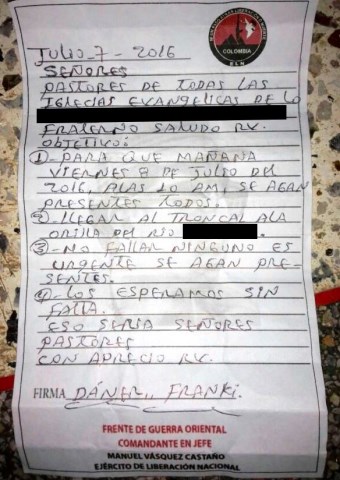 JULIO-7-2016
SEÑORES
PASTORES DE TODAS LAS
IGLECIAS EVANGELICAS DE LO
FRATERNO SALUDO RV.
OBJETIVO:
1-PARA QUE MAÑANA
VIERNES 8 DE JULIO DEL
2016, ALAS 10 AM, SE AGAN
PRESENTES TODOS.
2-LLEGAR AL TRONCAL ALA
ORILLA DEL RIO
3-NO FALLAR NINGUNO ES
URGENTE SE AGAN PRE-
SENTES.
4-LOS ESPERAMOS SIN
FALTA.
ESO SERIA SEÑORES
PASTORES
CON APRECIO RV.
FIRMA DÁNER,, FRANKI.
FRENTE DE GUERRA ORIENTAL
COMANDANTE EN JEFE
MANUEL VÁSQUEZ CASTAÑO
EJÉRCITO DE LIBERACIÓN NACIONAL
COLOMBIA
ELN